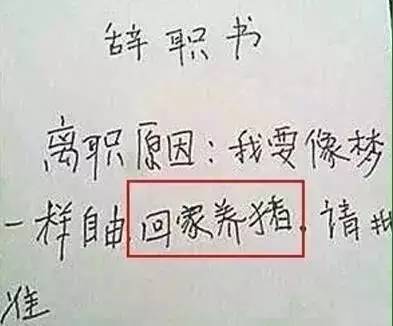 辞职书
离职原因：我要像梦
一样自由,回家养猪。请批
准